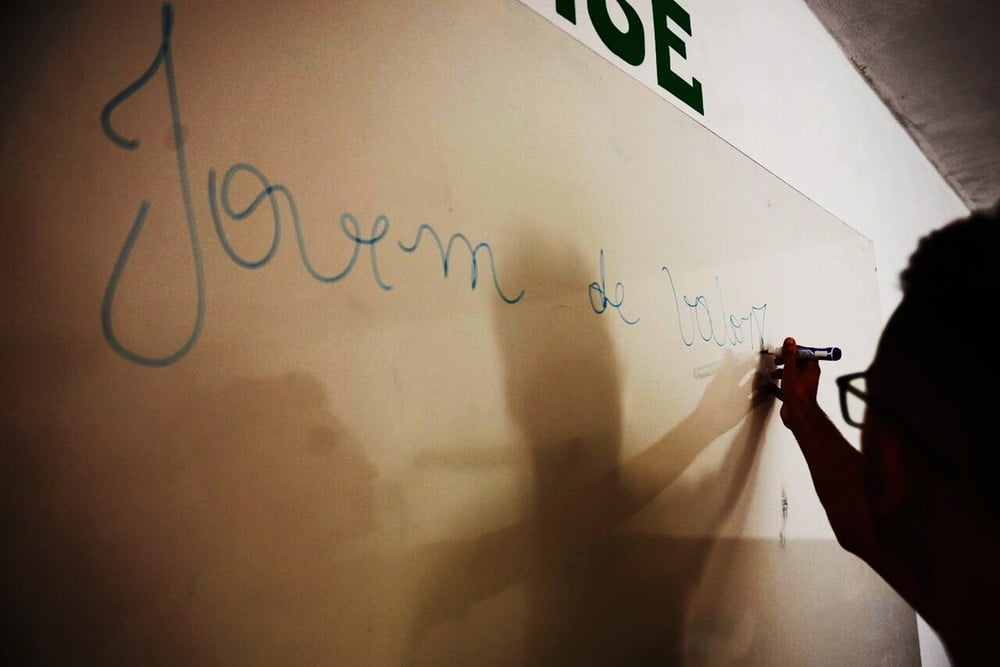 Jovem de Valor